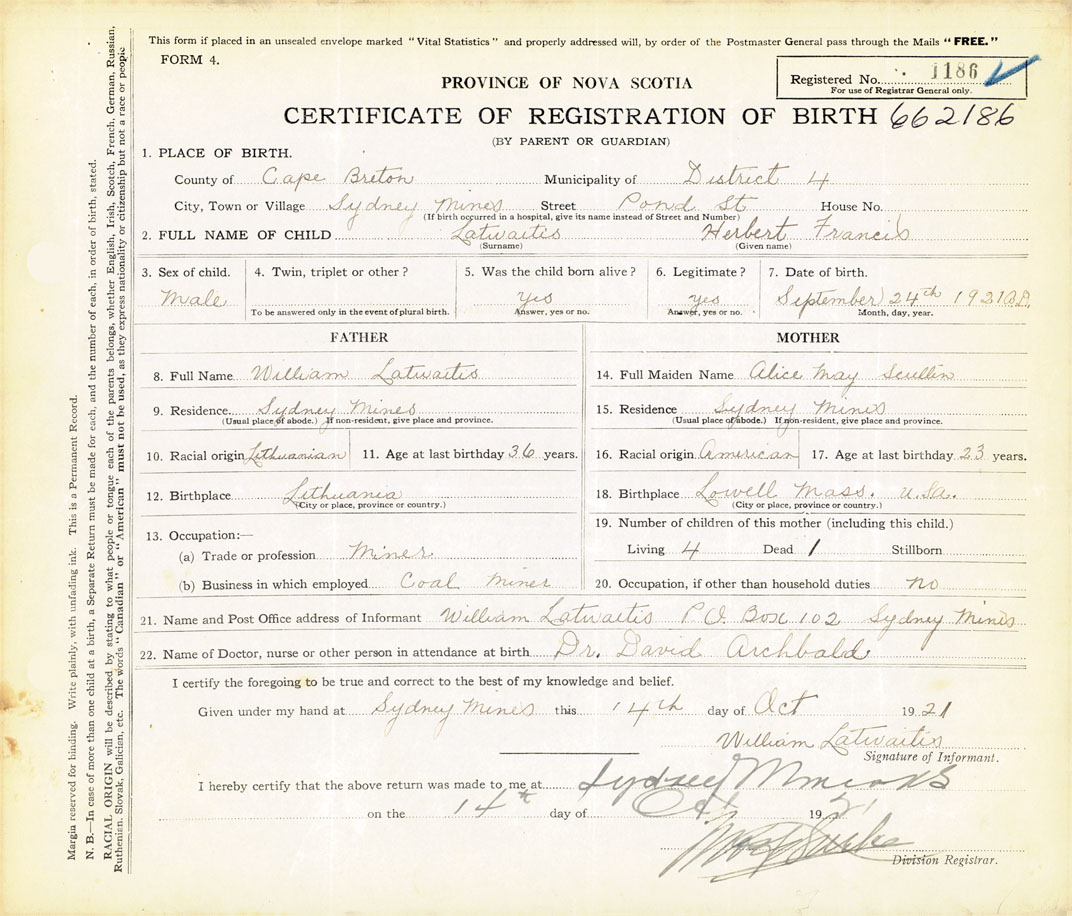 This form if placed in an unsealed envelope marked "Vital Statistics" and properly addressed will, by order of the Postmaster General pass through the Mails "FREE."
FORM 4.
Registered No. 1186
For use of Registrar General only.
PROVINCE OF NOVA SCOTIA
CERTIFICATE OF REGISTRATION OF BIRTH 662186
(BY PARENT OR GUARDIAN)
1. PLACE OF BIRTH.
County of Cape Breton Municipality of District 4
City, Town or Village Sydney Mines Street Pond St House No.
(If birth occurred in a hospital, give its name instead of Street and Number)
2. FULL NAME OF CHILD Latwaitis Herbert Francis
(Surname) (Given name)
3. Sex of child. 4. Twin, triplet or other? 5. Was the child born alive? 6. Legitimate? 7. Date of birth.
Male yes yes September 24th 1921 A.D.
To be answered only in the event of plural birth. Answer, yes or no. Answer, yes or no. Month, day, year.
FATHER
8. Full Name William Latwaitis
9. Residence Sydney Mines
(Usual place of abode.) If non-resident, give place and province.
10. Racial origin Lithuanian 11. Age at last birthday 36 years.
12. Birthplace Lithuania
(City or place, province or country.)
13. Occupation:—
(a) Trade or profession Miner
(b) Business in which employed Coal Miner
MOTHER
14. Full Maiden Name Alice May Scullin
15. Residence Sydney Mines
(Usual place of abode.) If non-resident, give place and province.
16. Racial origin American 17. Age at last birthday 23 years.
18. Birthplace Lowell Mass. U.S.a.
(City or place, province or country.)
19. Number of children of this mother (including this child.)
Living 4 Dead 1 Stillborn
20. Occupation, if other than household duties no
21. Name and Post Office address of Informant William Latwaitis P.O. Box 102 Sydney Mines
22. Name of Doctor, nurse or other person in attendance at birth Dr. David Archbald
I certify the foregoing to be true and correct to the best of my knowledge and belief.
Given under my hand at Sydney Mines this 14th day of Oct 1921
William Latwaitis
Signature of Informant.
I hereby certify that the above return was made to me at Sydney Mines
on the 14th day of Oct 1921
Division Registrar.
Margia reserved for binding. Write plainly, with unfading ink. This is a Permanent Record.
N. B.—In case of more than one child at a birth, a Separate Return must be made for each, and the number of each, in order of birth, stated.
RACIAL ORIGIN will be described by stating to what people or tongue each of the parents belongs, whether English, Irish, Scotch, French, German, Russian,
Ruthenian. Slovak, Galician, etc. The words "Canadian" or "American" must not be used, as they express nationality or citizenship but not a race or people